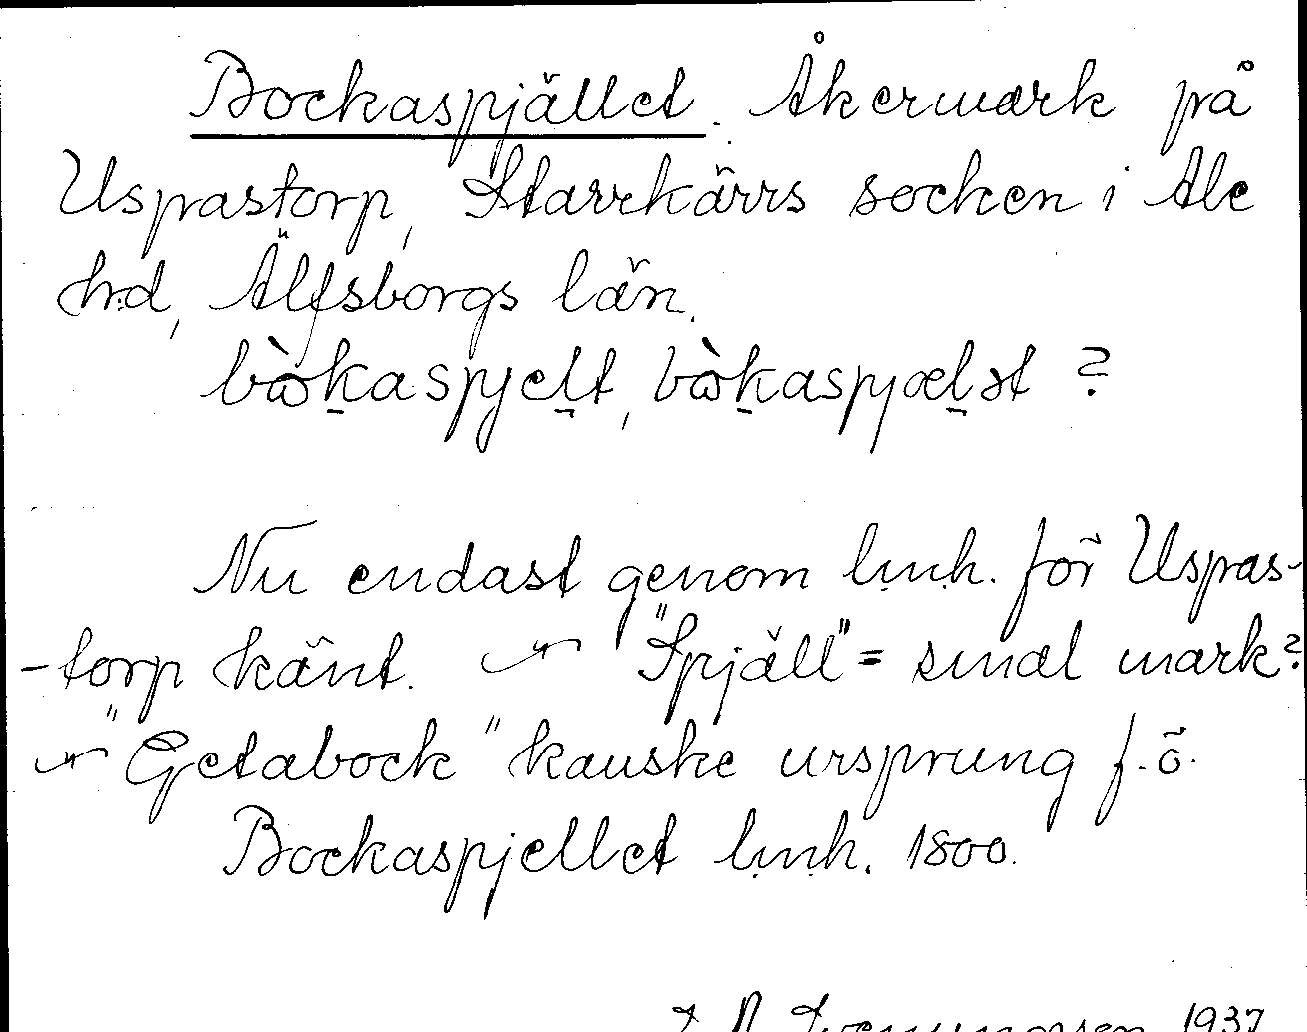 Bockaspjället. Åkermark på
Uspastorp, Starrkärrs socken i Ale
hd, Älfsborgs län.
bòkaspjelt, bòkaspjælst ?
Nu endast genom lmh. för Uspas-
-torp känt. "Spjäll" = smal mark?
"Getabock" kanske ursprung f. ö.
Bockaspjellet lmh. 1800.
1937